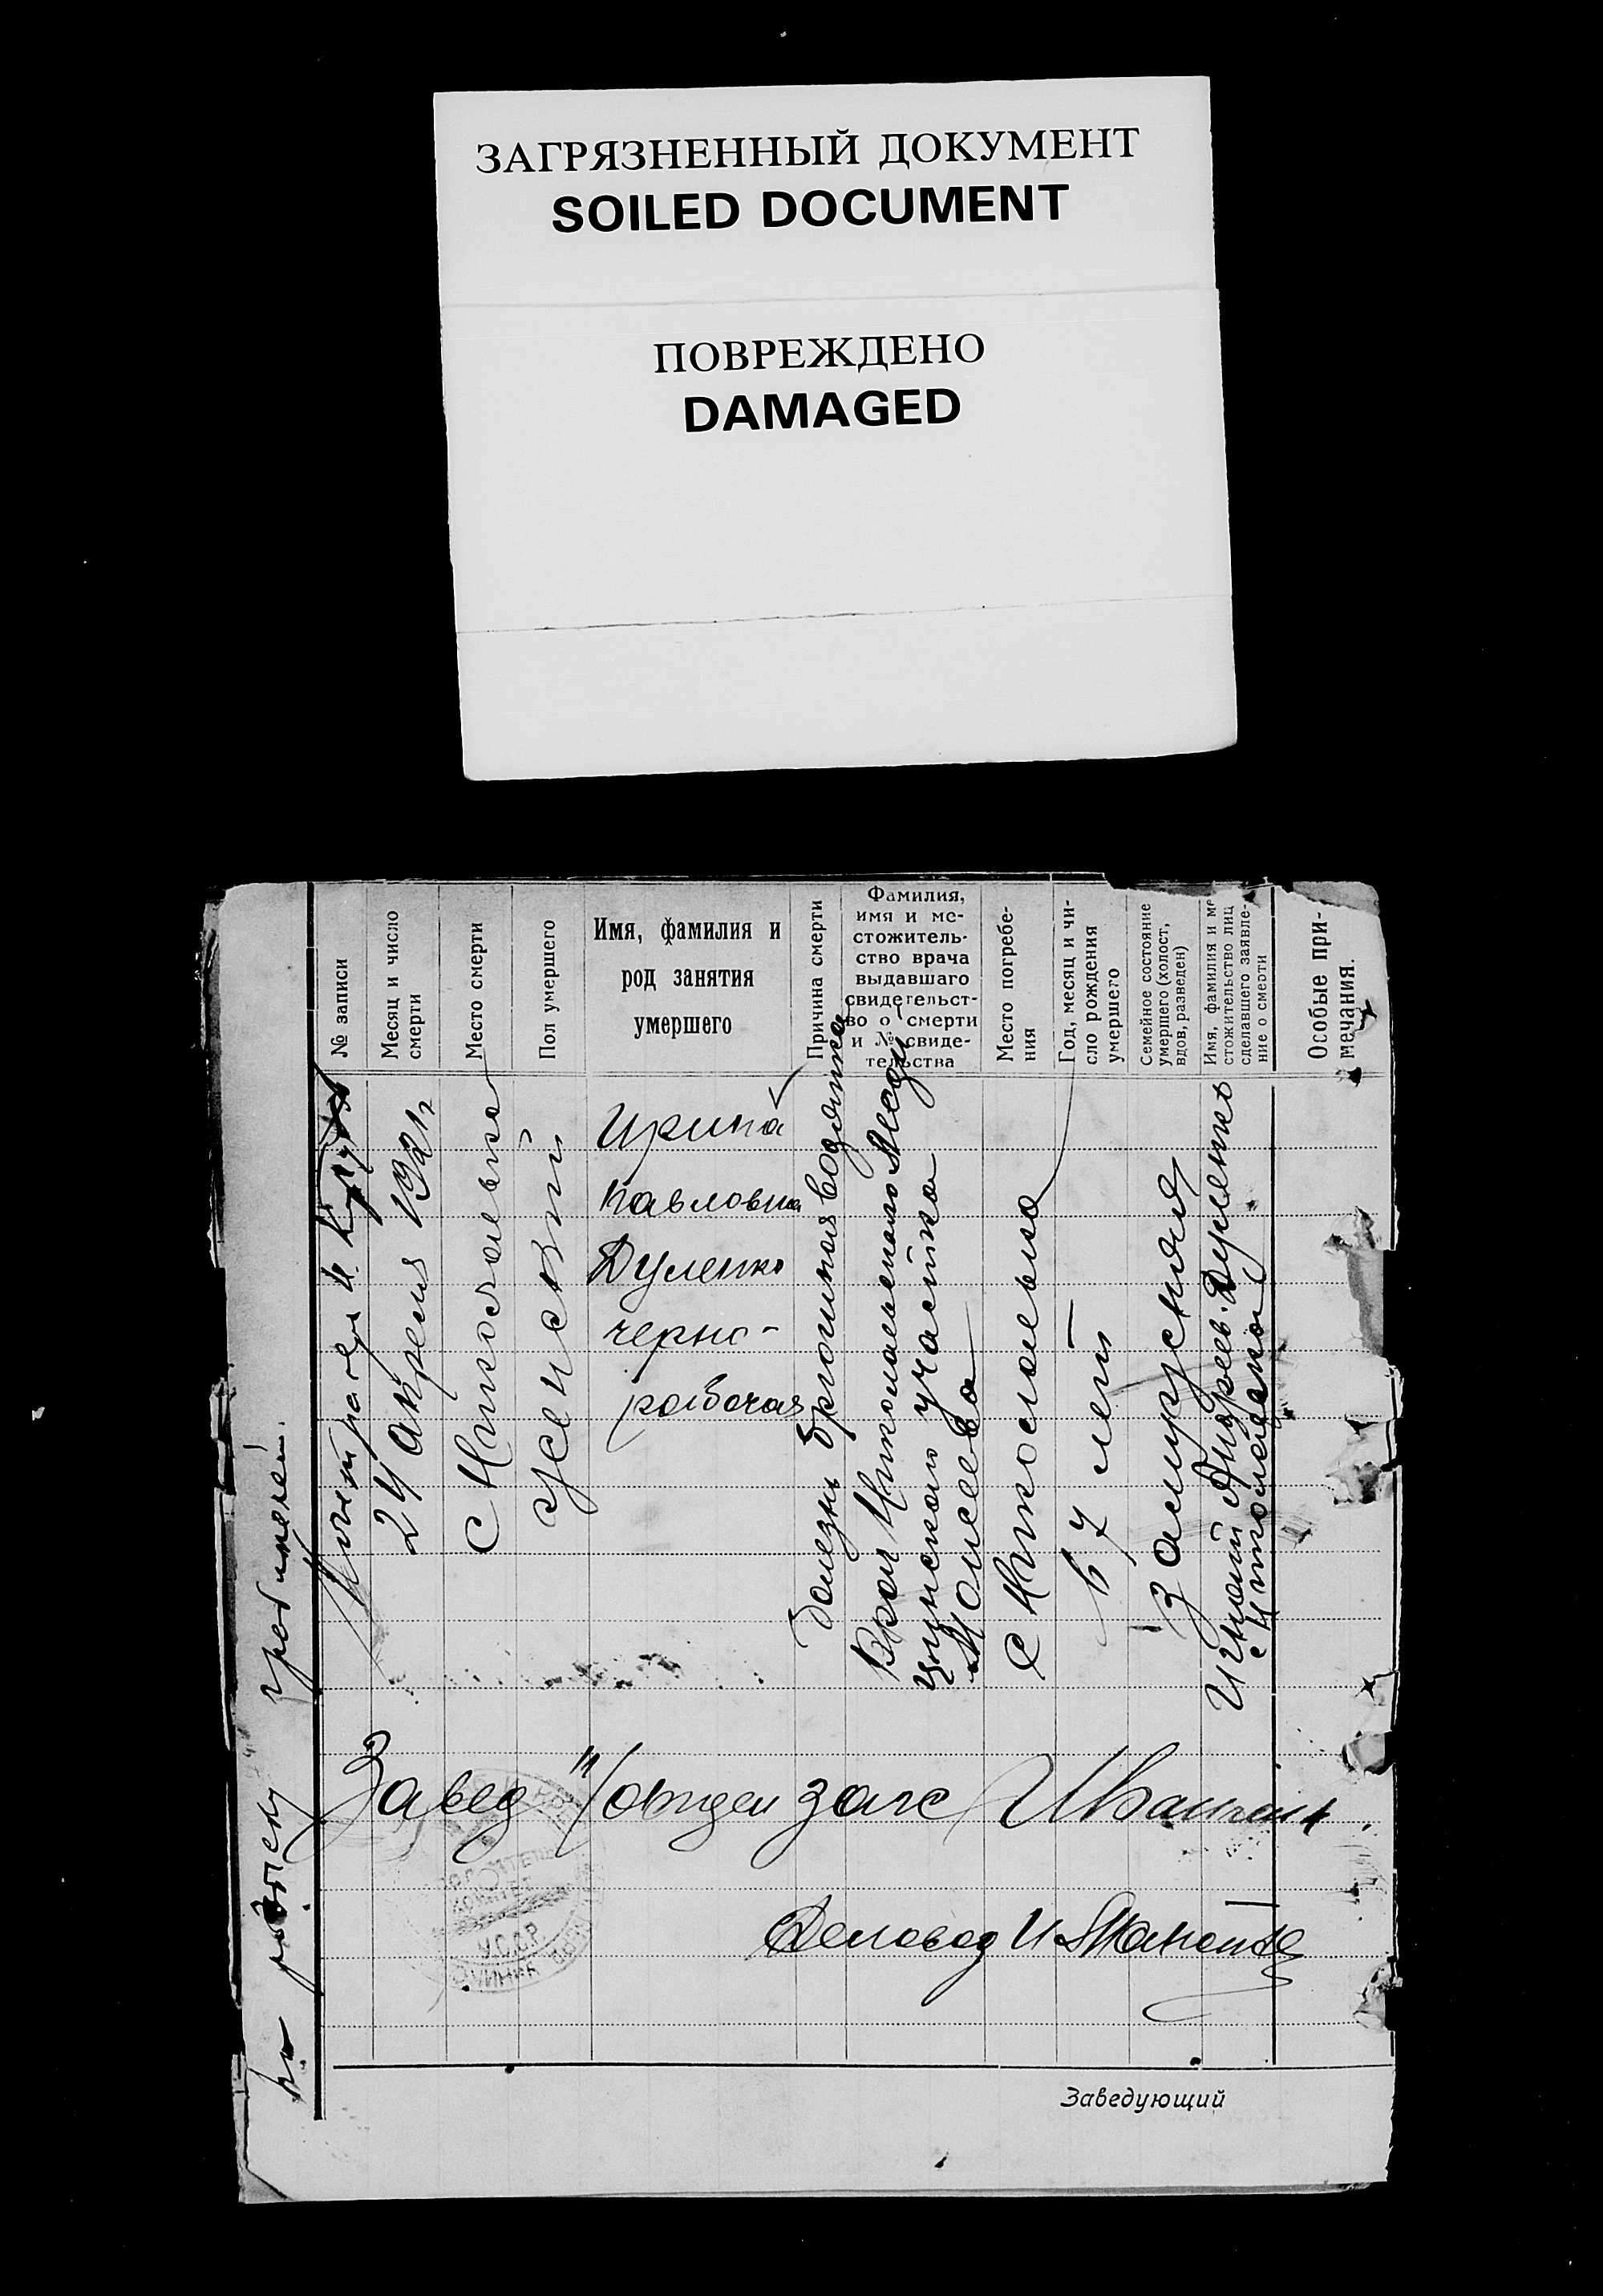 ЗАГРЯЗНЕННЫЙ ДОКУМЕНТ
SOILED DOCUMENT
ПОВРЕЖДЕНО
DAMAGED
№ записи
Месяц и число
смерти
Место смерти
Пол умершего
Имя, фамилия и
род занятия
умершего
Причина смерти
Фамилия,
имя и ме-
стожитель-
ство врача
выдавшаго
свидетельст-
во о смерти
и № свиде-
тельства
Место погребе-
ния
Год, месяц и чи-
сло рождения
умершего
Семейное состояние
умершего (холост,
вдов, разведен)
Имя, фамилия и ме
стожительство лиц
сделавшего заявле-
ние о смерти
Особые при-
мечания.
24 апреля 192
С Николаевка
Женский
Ирина
Павловна
Дуленко
черно-
рабочая
болезнь водянка
Врач Николаевского Меди
цинского участка
Моисеева
С Николаевка
67 лет
Замужняя
Игнат Андреев. Дуленко
с Николаевка
Завед п/отдел загс
Деловод И
У.С.С.Р.
Заведующий